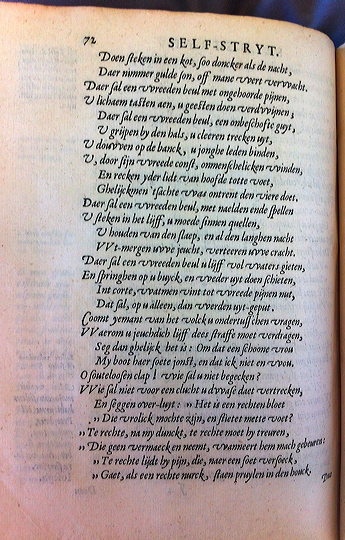 72 SELF-STRYT.
Doen steken in een kot, soo doncker als de nacht,
Daer nimmer gulde son, off mane wert verwacht.
Daer sal een wreeden beul met ongehoorde pijnen,
U lichaem tasten aen, u geesten doen verdwijnen;
Daer sal een wreeden beul, een onbeschofte guyt,
U grijpen by den hals, u cleeren trecken uyt,
U douwen op de banck, u jonghe leden binden,
U, door sijn wreede const, onmenschelicken winden,
En recken yder lidt van hoofde totte voet,
Ghelijckmen 'tsachte was ontrent den viere doet.
Daer sal een wreeden beul, met naelden ende spellen
U steken in het lijff, u moede sinnen quellen,
U houden van den slaep, en al den langhen nacht
VVt-mergen uwe jeucht, verteeren uwe cracht.
Daer sal een wreeden beul u lijff vol waters gieten,
En springhen op u buyck, en weder uyt doen schieten,
Int corte, watmen vint tot wreede pijnen nut,
Dat sal, op u alleen, dan werden uyt-geput.
Coomt yemant van het volck u ondertusschen vragen,
VVaerom u jeuchdich lijff dees straffe moet verdragen,
Seg dan ghelijck het is: Om dat een schoone vrou
My boot haer soete jonst, en dat ick niet en wou.
O souteloosen clap! wie sal u niet begecken?
VVie sal niet voor een clucht u dwase daet vertrecken,
En seggen over-luyt: „ Het is een rechten bloet
„ Die vrolick mochte zijn, en stietet mette voet?
„ Te rechte, na my dunckt, te rechte moet hy treuren,
„ Die geen vermaeck en neemt, wanneert hem mach gebeuren:
„ Te rechte lijdt hy pijn, die, naer een soet versoeck,
„ Gaet, als een rechte nurck, staen pruylen in den houck.